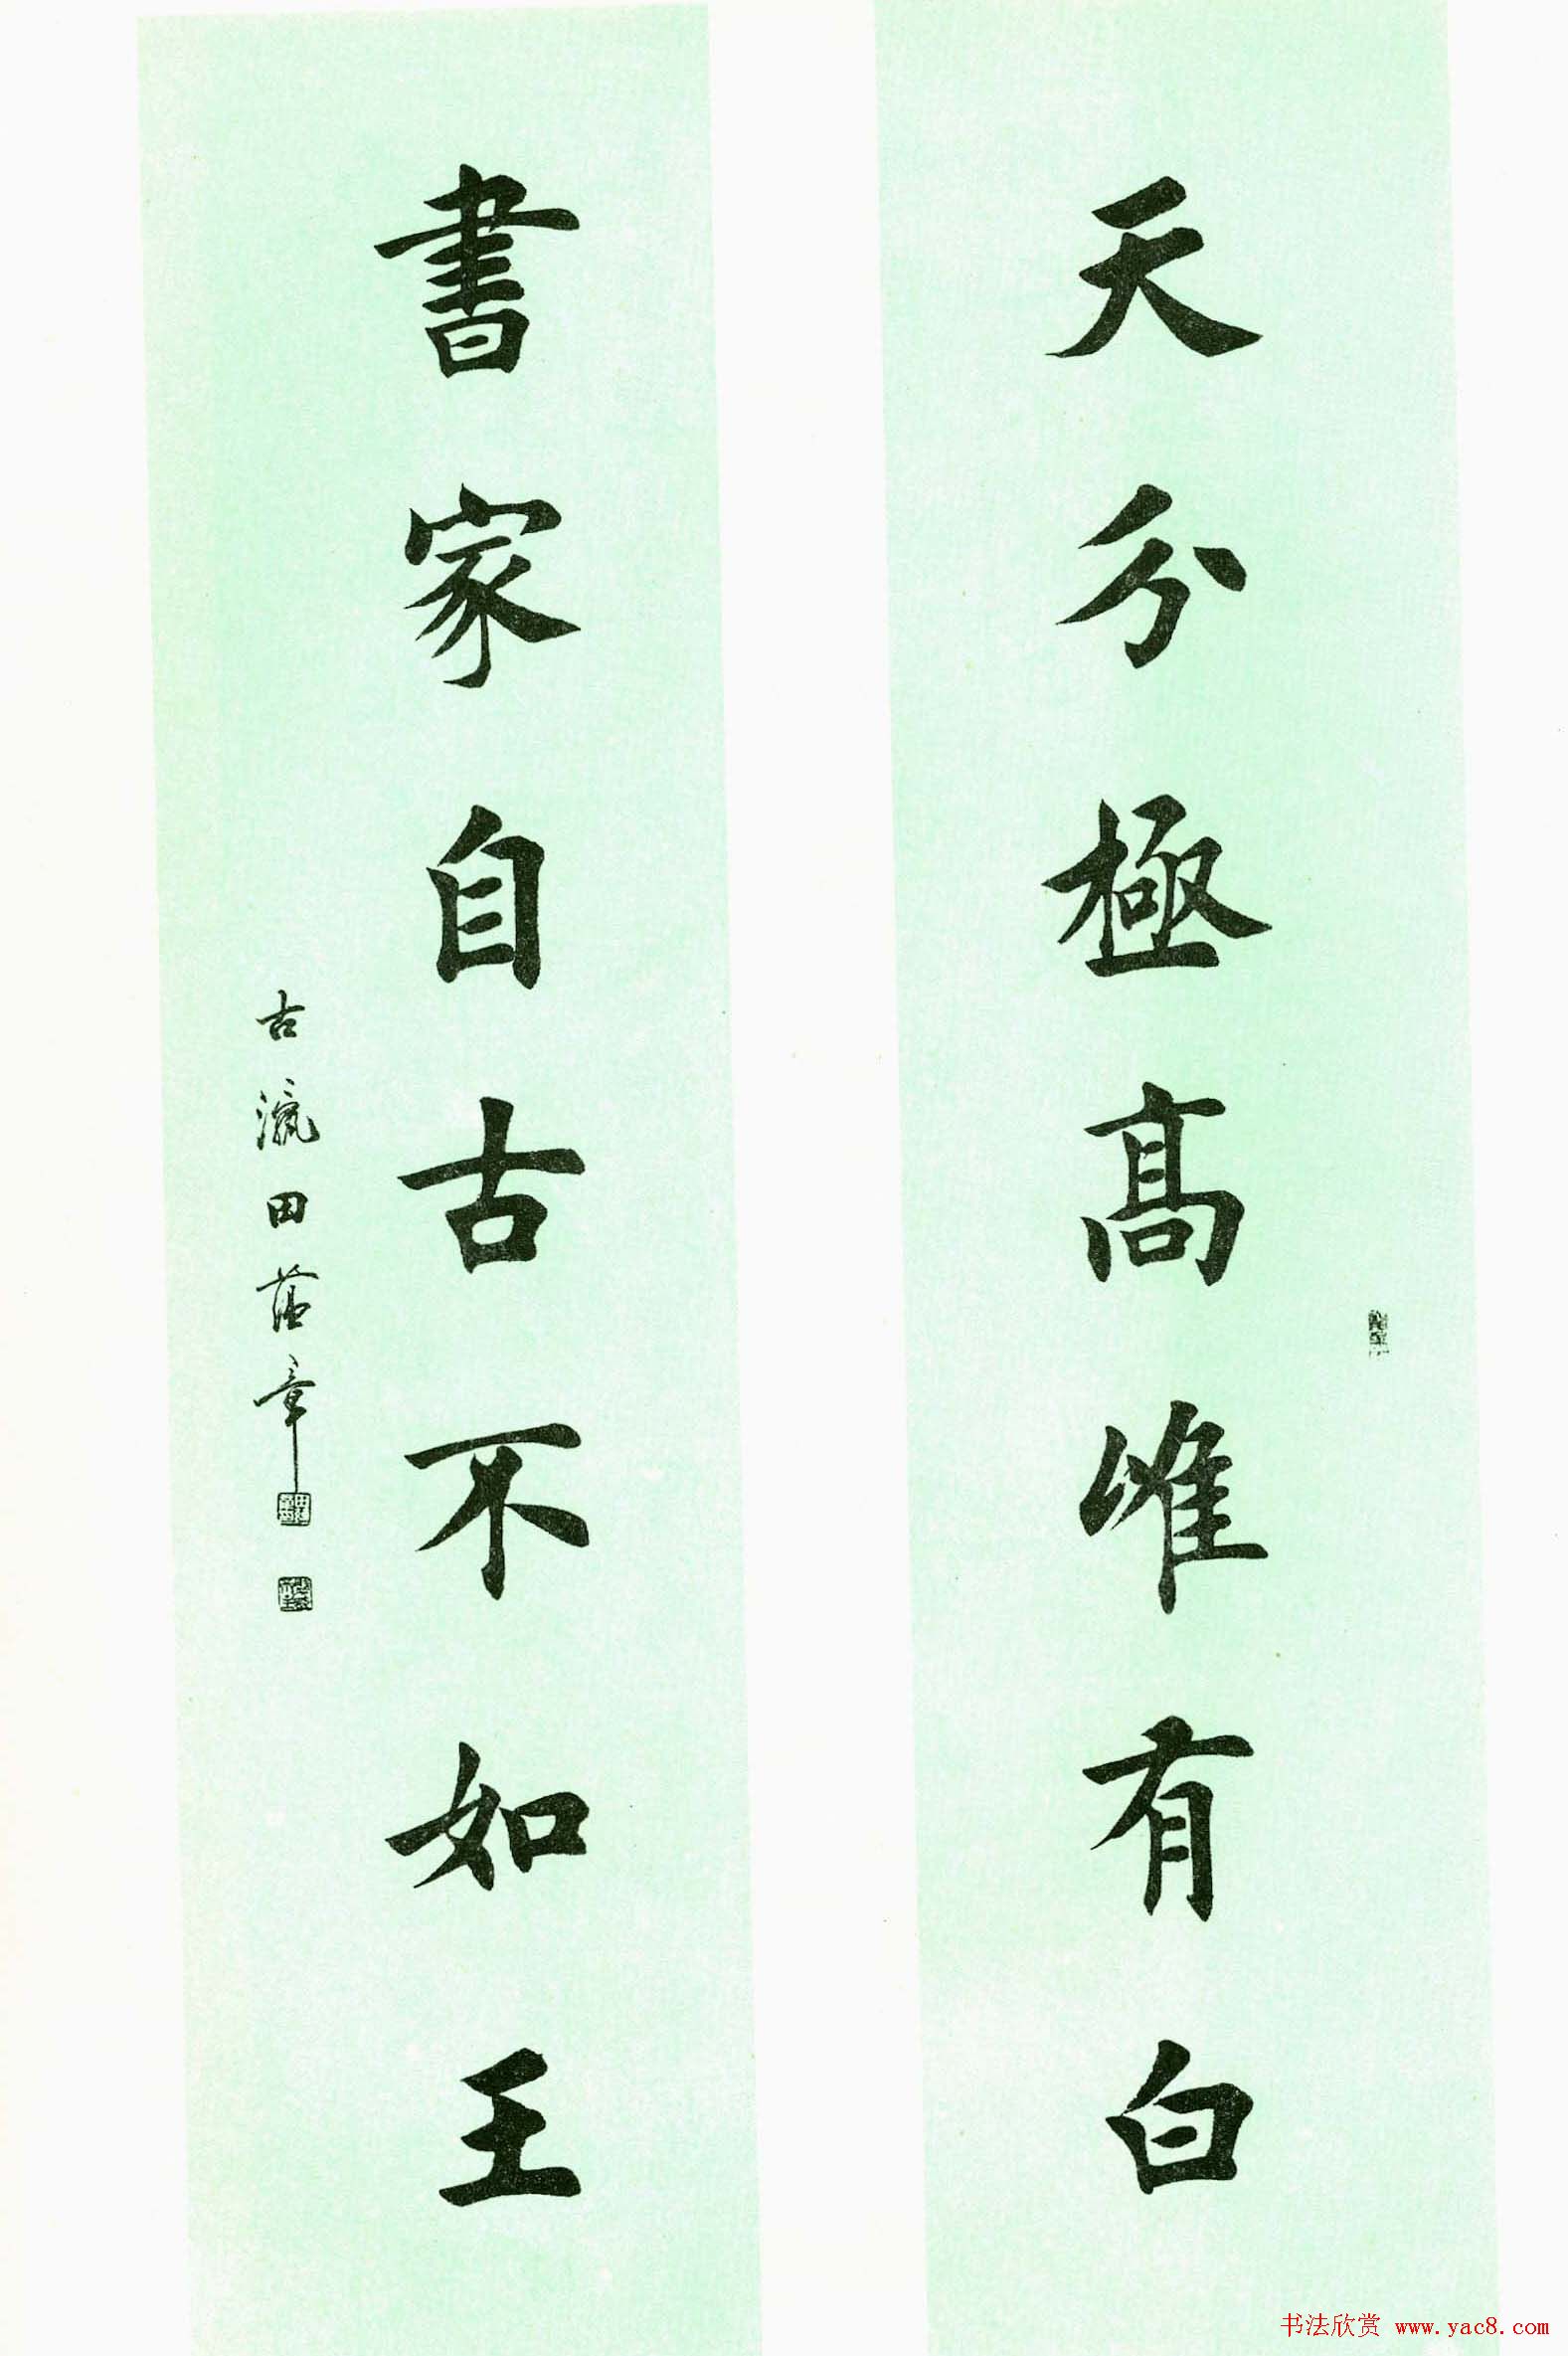 天分極高惟有白
書家自古不如王
古瀛田蘊章
书法欣赏 www.yac8.com